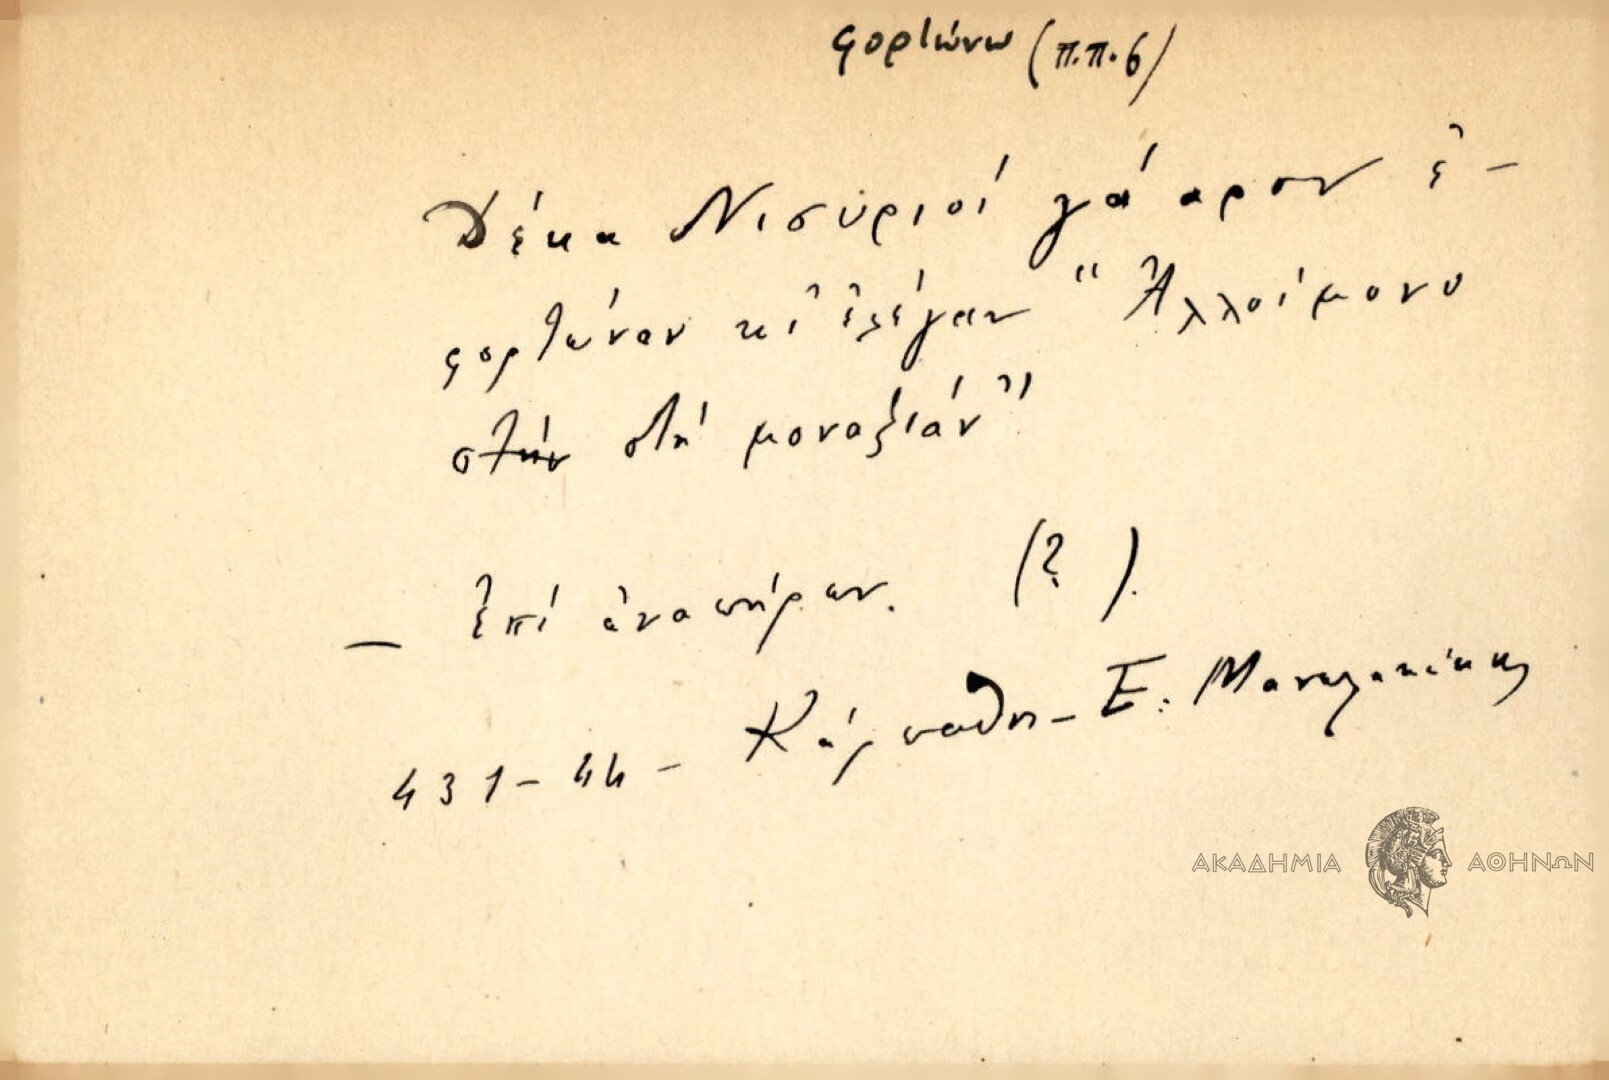 φορτώνω (π.π. 6)
Δέκα Νισύριοί γά αρον ἐ-
φορτώναν κι' ἐλέγαν "Ἀλλοίμονο
στήν στή μοναξιάν"
— Ἐπί ἀναπήρων. (?).
431-44- Κάρπαθος - Ε. Μανωλακάκης
ΑΚΑΔΗΜΙΑ ΑΘΗΝΩΝ